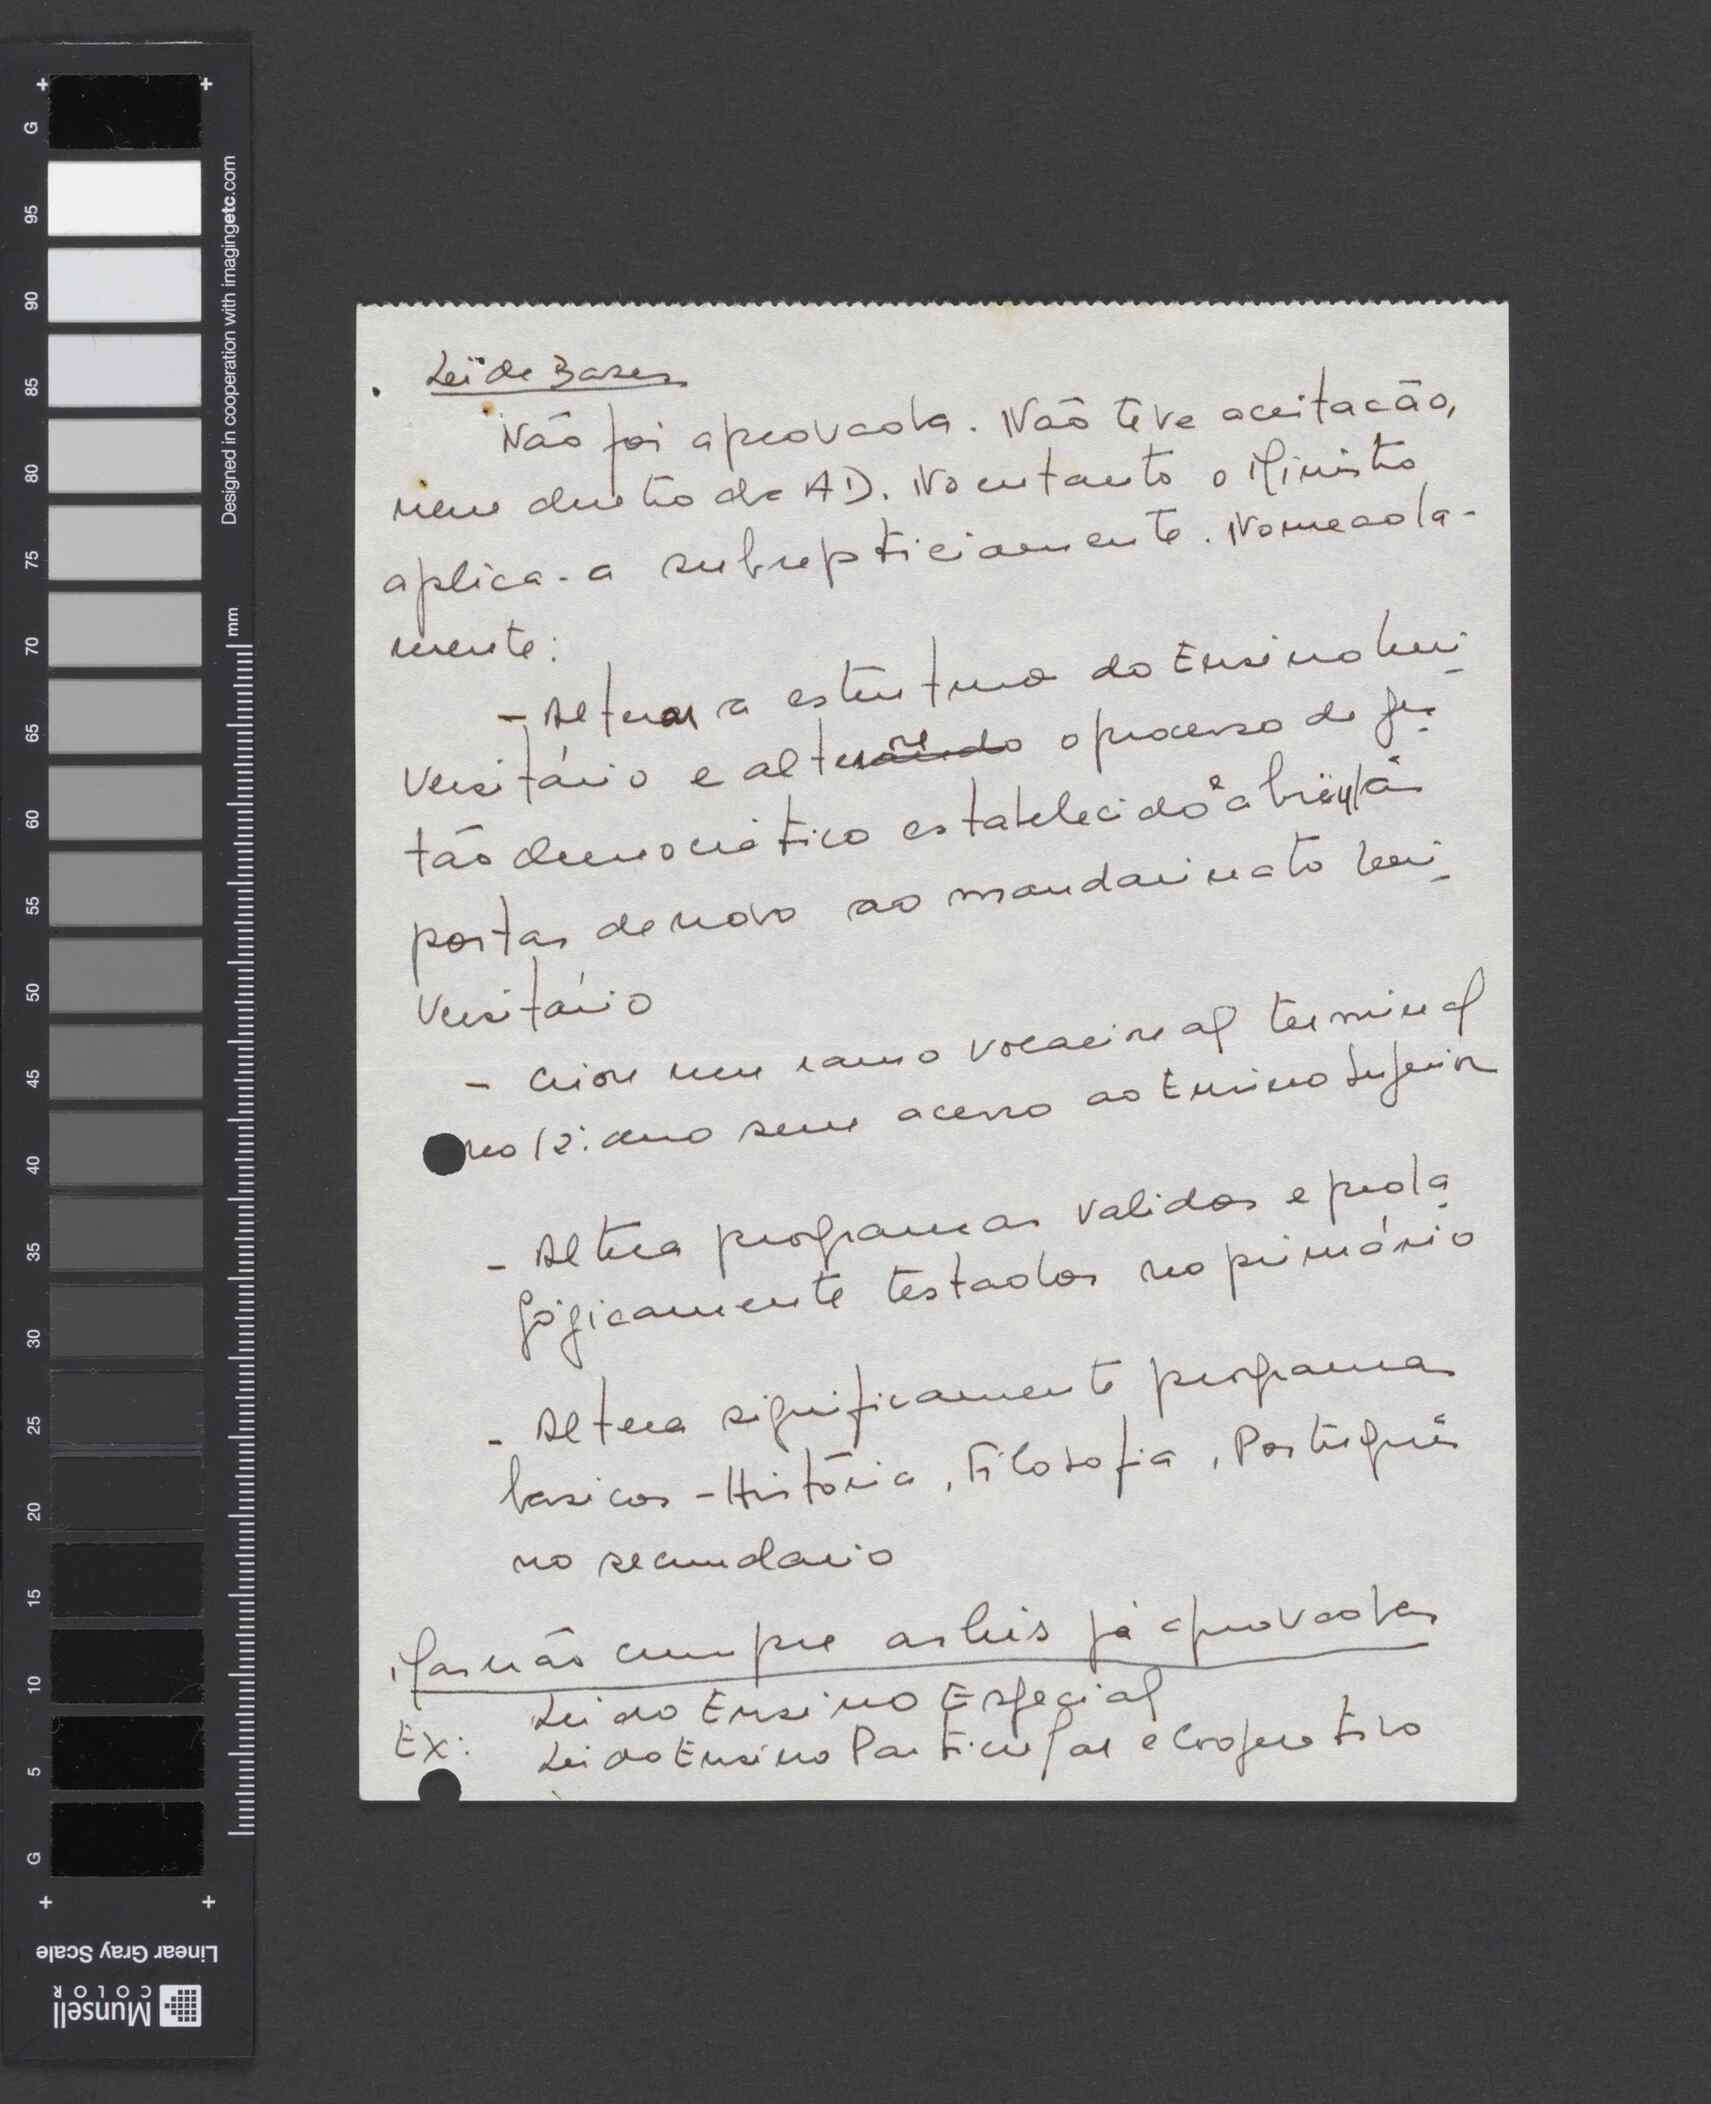 Lei de Bases
Não foi aprovada. Não teve aceitacão,
nem dentro da AD. No entanto o Ministro
aplica-a subrepticiamente. Nomeada-
mente:
- Altera a estrutura do Ensino Uni-
versitário e alterar o processo de ges-
tão democrático estabelecido e abrir às
portas de novo ao mandarinato Uni-
versitário
- Criar um ramo vocacional terminal
no 12º ano sem acesso ao Ensino Superior
- Altera programas validos e peda-
gógicamente testados no primário
- Altera significamente programas
basicos - História, Filosofia, Português
no secundario
Mas não cumpre as leis já aprovadas
Lei do Ensino Especial
Ex: Lei do Ensino Particular e Cooperativo
G
95
90
85
80
75
70
65
60
55
50
45
40
35
30
25
20
15
10
5
G
Designed in cooperation with imagingetc.com
mm
Linear Gray Scale
Munsell
COLOR